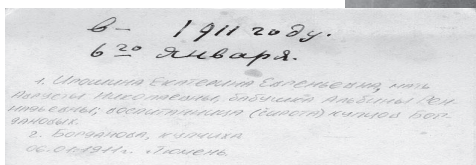 в- 1911 году.
6го января.
1. Илюшина Екатерина Евгеньевна, мать
Августы Николаевны, бабушка Альбины Ген-
надьевны, воспитанница (сирота) купцов Бог-
дановых.
2. Богданова, купчиха
06.01.1911г. Тюмень